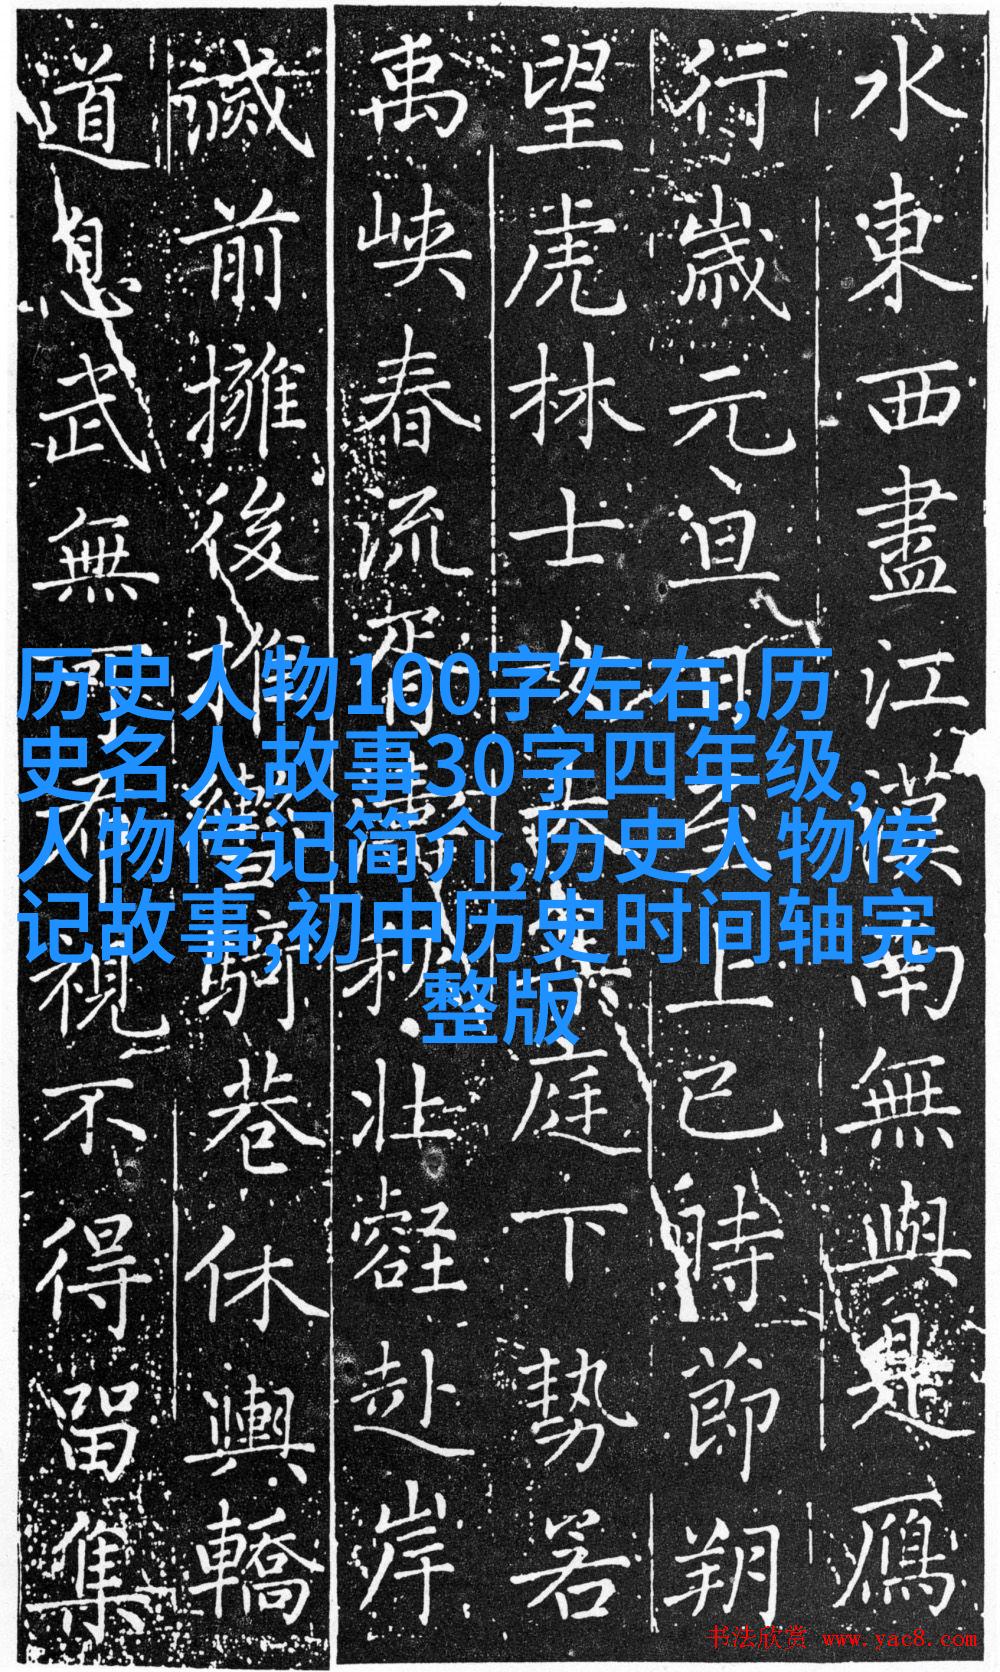 水東西盡江漢南無與是鴈
行歲元旦至上巳時節朔
望虎林士女大集庭下勢若
禹峽春流胥濤秋壯壑赴岸
前擁後推轡巷休輿轎
道息武無可布視不得留隻
历史人物100字左右,历
史名人故事30字四年级,
人物传记简介,历史人物传
记故事,初中历史时间轴完
整版
书法欣赏 www.yac8.com